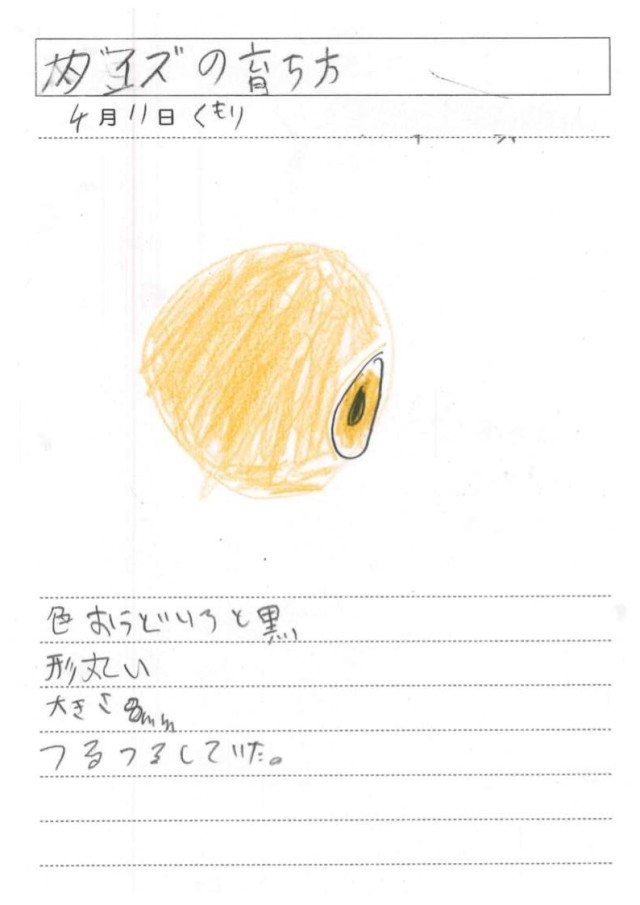 ダイズの育ち方
4月11日くもり
色おうどいろと黒
形丸い
大きさ8mm
つるつるしていた。